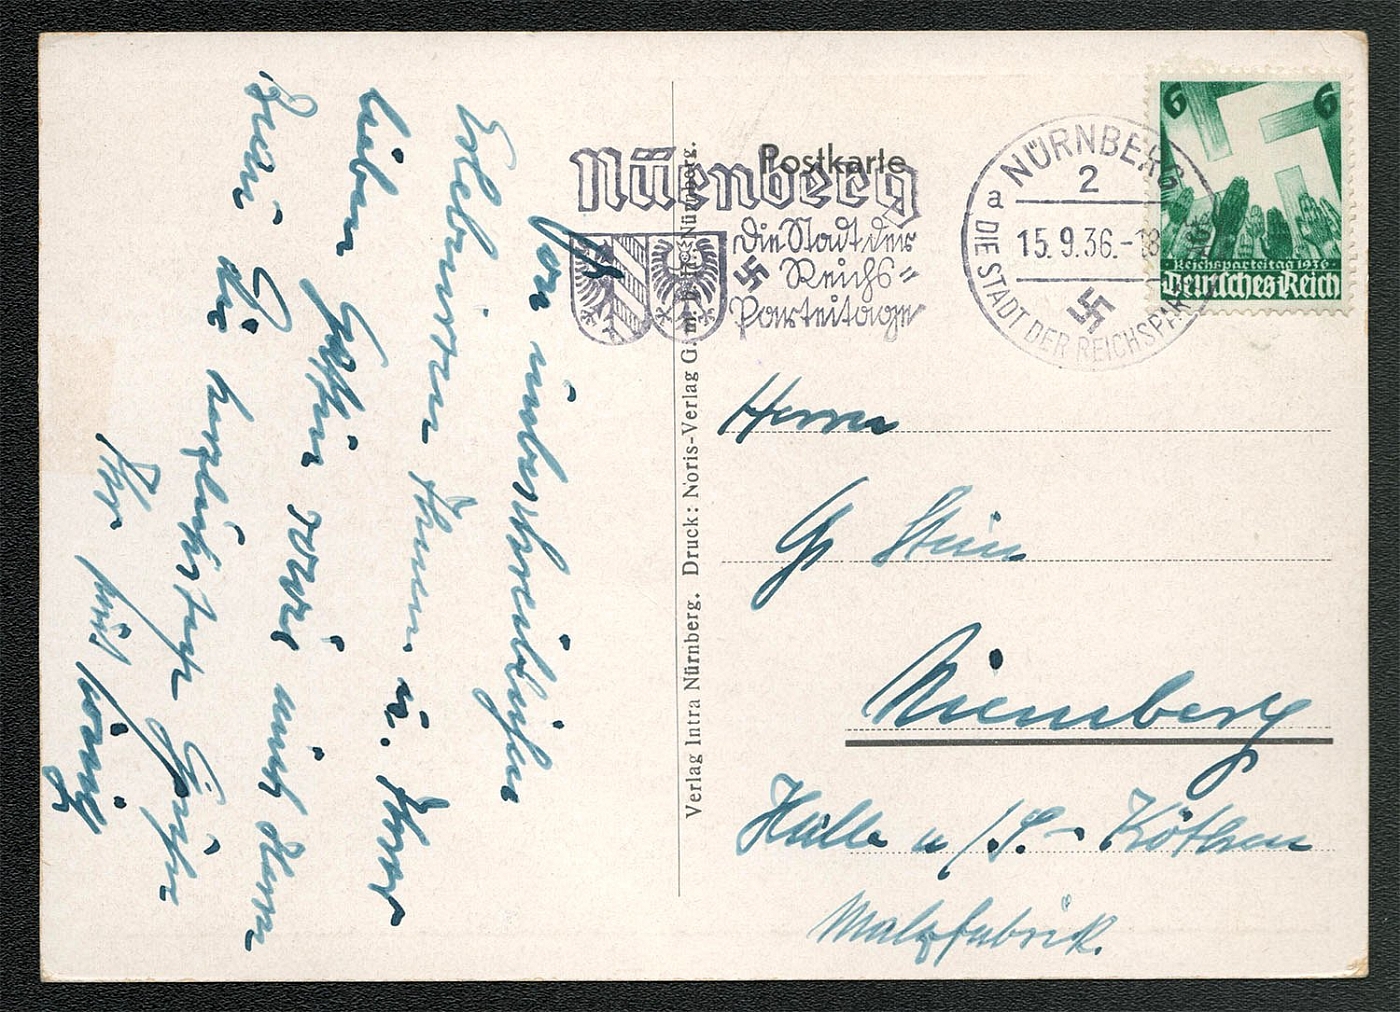 Postkarte
Nürnberg
Die Stadt der
Reichs-
Parteitage
NÜRNBERG
2
a
15.9.36.-18
DIE STADT DER REICHSPAR
6 6
Reichsparteitag 1936
Deutsches Reich
Verlag Intra Nürnberg. Druck: Noris-Verlag G.m.b.H. Nürnberg.
Herrn
Stein
Niemberg
Halle a/S.- Köthen
Malzfabrik.
Von unbeschreiblichen
Erlebnissen Ihnen u. Ihrer
lieben Gattin sowie auch Ihrem
die herzlichsten Grüße
Ihr